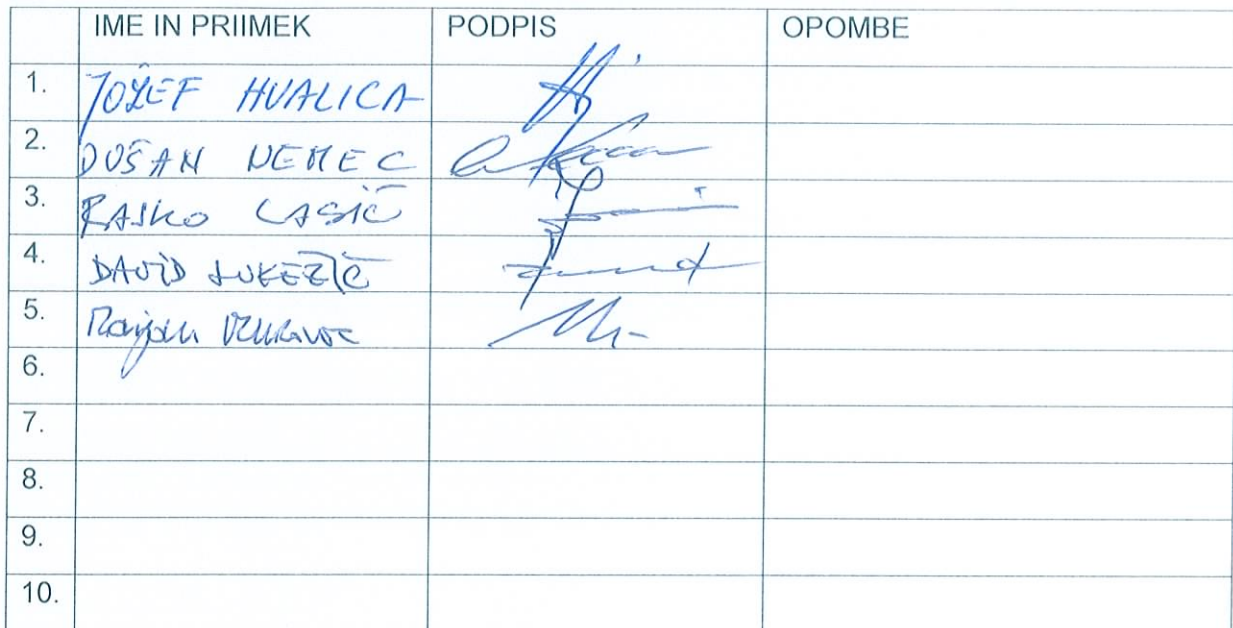 IME IN PRIIMEK PODPIS OPOMBE
1. JOŽEF HVALICA
2. DUŠAN NEMEC
3. RAJKO LASIČ
4. DAVID LUKEŽIČ
5.
6.
7.
8.
9.
10.